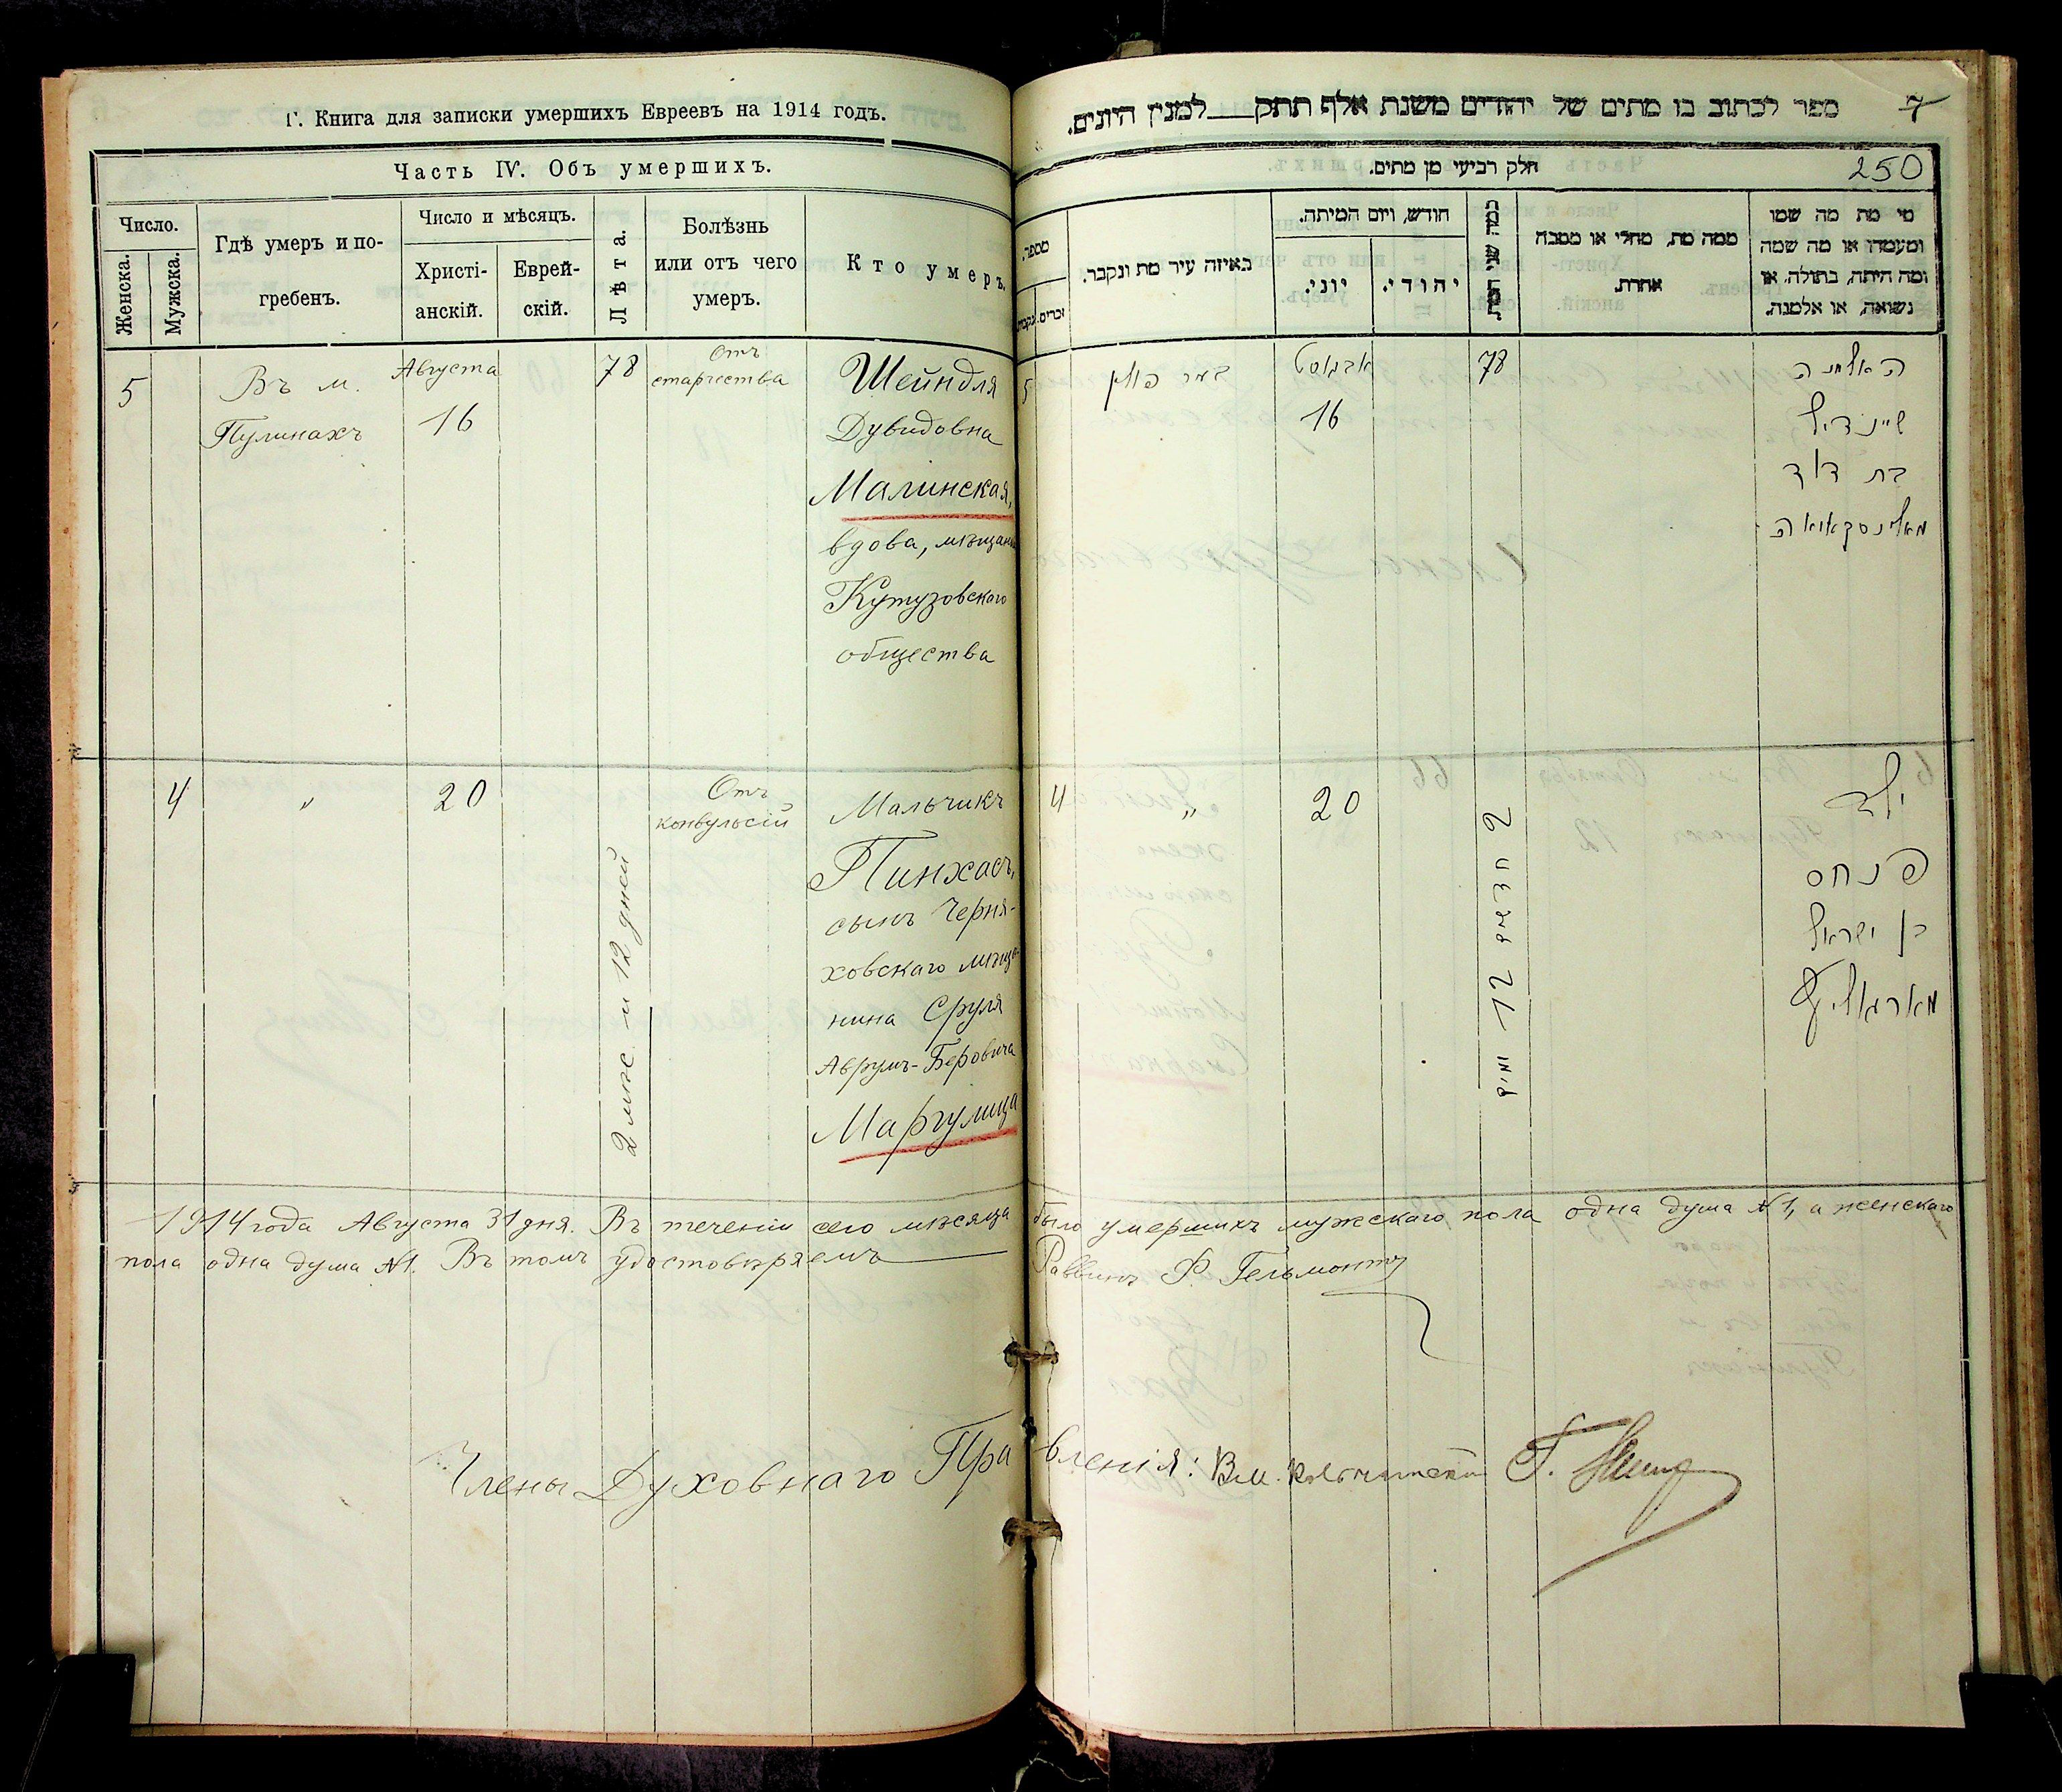 Г. Книга для записки умершихъ Евреевъ на 1914 годъ.
Часть IV. Объ умершихъ.
Число.
Женска.
Мужска.
Гдѣ умеръ и по-
гребенъ.
Число и мѣсяцъ.
Христі-
анскій.
Еврей-
скій.
Лѣта.
Болѣзнь
или отъ чего
умеръ.
Кто умеръ.
5
Въ м.
Пулинахъ
Августа
16
78
Отъ
старчества
Шейндля
Дувидовна
Малинская,
вдова, мѣщанка
Кутузовскаго
общества
4
"
20
2 мѣс. и 12 дней
Отъ
конвульсій
Мальчикъ
Пинхасъ,
сынъ Черня-
ховскаго мѣща-
нина Сруля
Аврумъ-Беровича
Маргулица
ספר לכתוב בו מתים של יהודים משנת אלף תתק למנין היונים.
7
250
חלק רביעי מן מתים.
מספר.
זכרים.
נקבות.
באיזה עיר מת ונקבר.
חודש, ויום המיתה.
יוני.
יהודי.
כמה שני המת.
ממה מת, מחלי או מסבה
אחרת.
מי מת מה שמו
ומעמדו או מה שמה
ומה היתה, בתולה, או
נשואה, או אלמנה.
5
אבגוסט
16
78
האלמנה
שיינדיל
בת דוד
מאלינסקאיא
4
"
20
2 חדשים 12 ימים
ילד
פנחס
בן ישראל
מארגאליץ
1914 года Августа 31 дня. Въ теченіи сего мѣсяца было умершихъ мужскаго пола одна душа №1, а женскаго
пола одна душа №1. Въ томъ удостовѣряемъ Раввинъ Ф. Гельмонтъ
Члены Духовнаго Правленія: